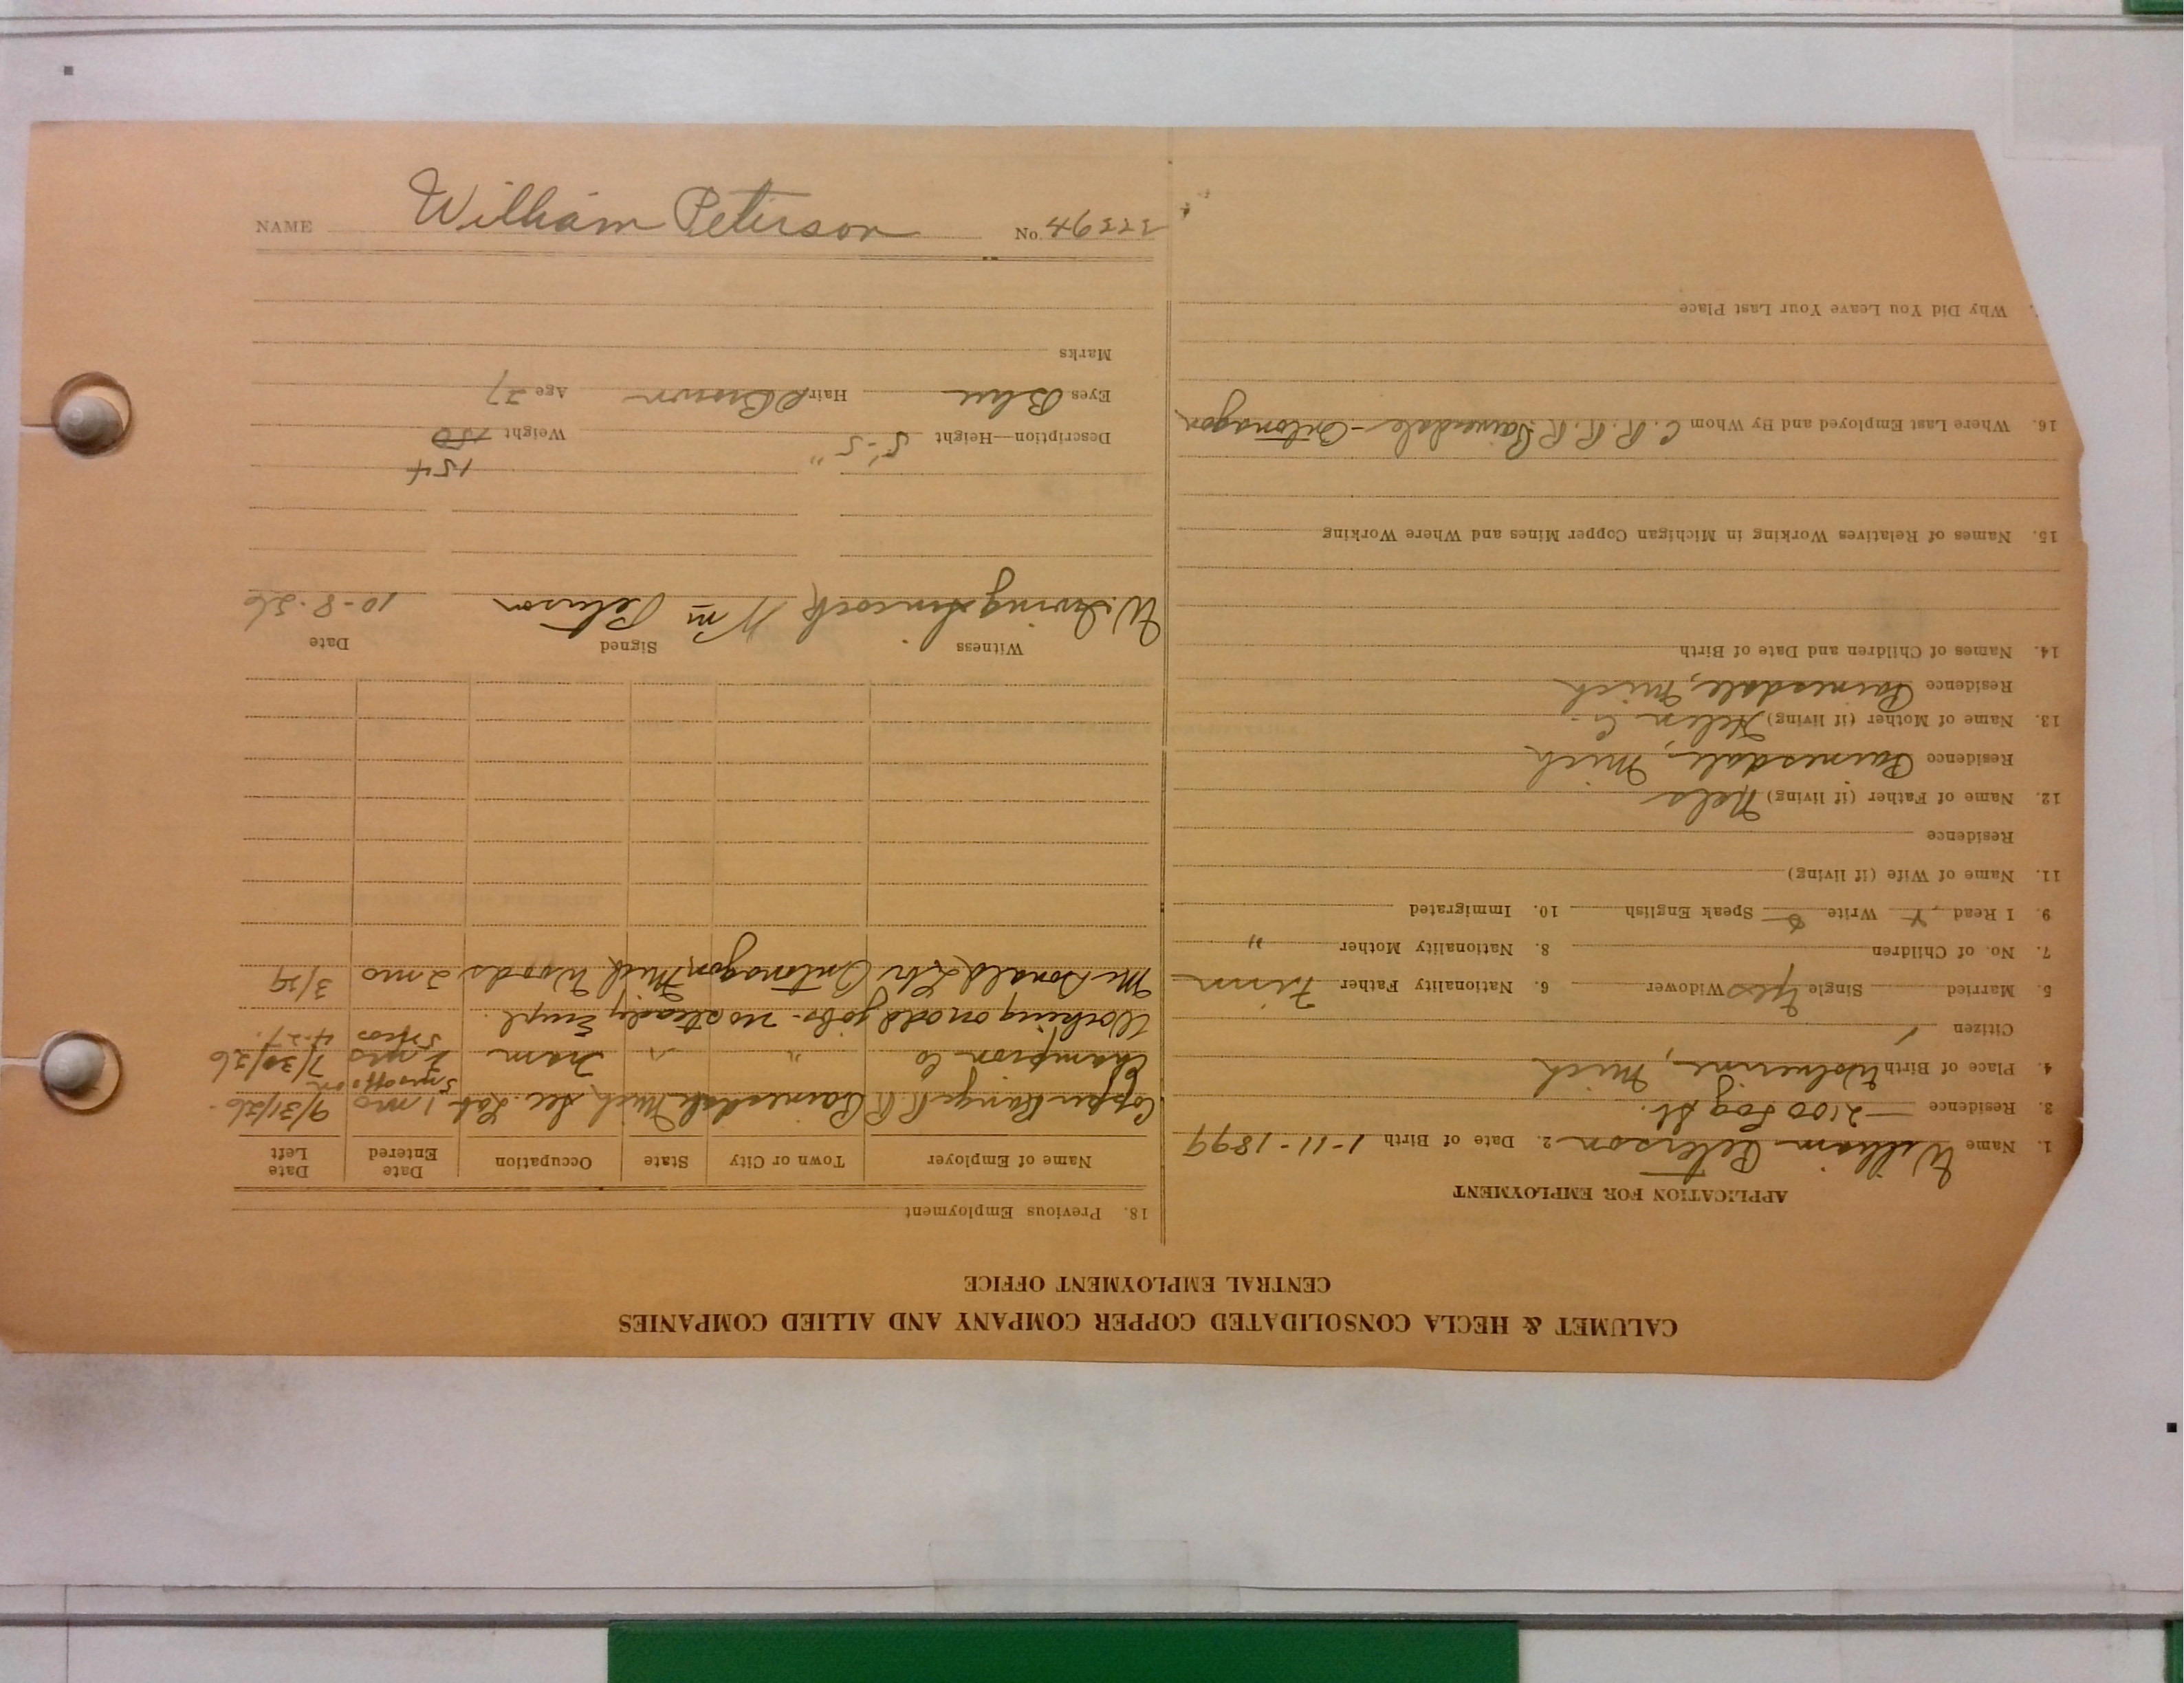 CALUMET & HECLA CONSOLIDATED COPPER COMPANY AND ALLIED COMPANIES
CENTRAL EMPLOYMENT OFFICE
APPLICATION FOR EMPLOYMENT
1. Name William Peterson 2. Date of Birth 1-11-1899
3. Residence 2100 Log St.
4. Place of Birth Wolverine, Mich
Citizen
5. Married Single Yes Widower 6. Nationality Father Finn
7. No. of Children 8. Nationality Mother "
9. I Read Y Write Speak English 10. Immigrated
11. Name of Wife (if living)
Residence
12. Name of Father (if living) Nels
Residence Painesdale, Mich
13. Name of Mother (if living) Helen
Residence Painesdale, Mich
14. Names of Children and Date of Birth
15. Names of Relatives Working in Michigan Copper Mines and Where Working
16. Where Last Employed and By Whom C. R. R. R. Painesdale - Ontonagon
Why Did You Leave Your Last Place
18. Previous Employment
Name of Employer Town or City State Occupation Date Entered Date Left
Copper Range R. R. Painesdale Mich Sec. Lab 1 mo 9/31/26
Champion Co " " Tram 2 yrs 7/30/26
5 mos 4-27.
Working on odd jobs - no steady Empl.
McDonald Lbr Ontonagon Mich Woods 2 mo 3/29
Witness Signed Date
W. Irving Wm Peterson 10-8-26
154
Description—Height 5'-5" Weight 150
Eyes Blue Hair Brown Age 27
Marks
NAME William Peterson No. 46323